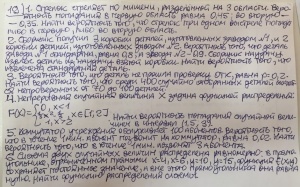 1. Стрелок стреляет по мишени, разделенной на 3 области. Веро-
ятность попадания в первую область равна 0,45 во вторую-
- 0,35. Найти вероятность того, что стрелок при одном выстреле попадет
либо в первую, либо во вторую область.
2. Сборщик получил 3 коробки деталей, изготовленных заводом №1, и 2
коробки деталей, изготовленных заводом №2. Вероятность того, что деталь
завода №1 стандартна, равна
извлек деталь из коробки. Найти вероятность того, что
извлечена стандартная деталь.
3. Вероятность того, что деталь не прошла проверку ОТК, равна p=0,2.
Найти вероятность того, что среди 400 случайно отобранных деталей окажется
непроверенных от 70 до 100 деталей.
4. Непрерывная случайная величина X задана функцией распределения
F(X)= x∈[1,2]
Найти вероятность попадания случайной величины
в интервал
5. Коммутатор учреждения обслуживает 100 абонентов. Вероятность того,
что в течение 1 мин. абонент позвонит на коммутатор, равна 0,02. Найти
вероятность того, что в течение 1 мин. позвонят 3 абонента.
6. Система двух случайных величин распределена равномерно: в прямо-
угольнике, ограниченном прямыми x=4, x=6, y=10, y=15, функция f(x,y)
сохраняет постоянное значение, а вне этого прямоугольника она равна
нулю. Найти функцию распределения системы.